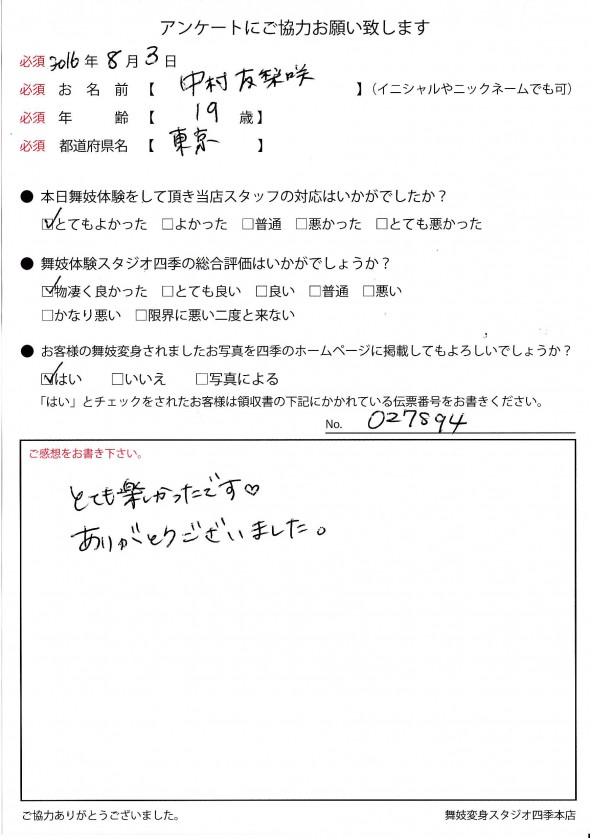 アンケートにご協力お願い致します
必須 2016年 8月 3日
必須 お名前 【 中村友梨咲 】(イニシャルやニックネームでも可)
必須 年 齢 【 19 歳】
必須 都道府県名 【 東京 】
● 本日舞妓体験をして頂き当店スタッフの対応はいかがでしたか？
☑とてもよかった □よかった □普通 □悪かった □とても悪かった
● 舞妓体験スタジオ四季の総合評価はいかがでしょうか？
☑物凄く良かった □とても良い □良い □普通 □悪い
□かなり悪い □限界に悪い二度と来ない
● お客様の舞妓変身されましたお写真を四季のホームページに掲載してもよろしいでしょうか？
☑はい □いいえ □写真による
「はい」とチェックをされたお客様は領収書の下記にかかれている伝票番号をお書きください。
No. 027894
ご感想をお書き下さい。
とても楽しかったです♡
ありがとうございました。
ご協力ありがとうございました。 舞妓変身スタジオ四季本店